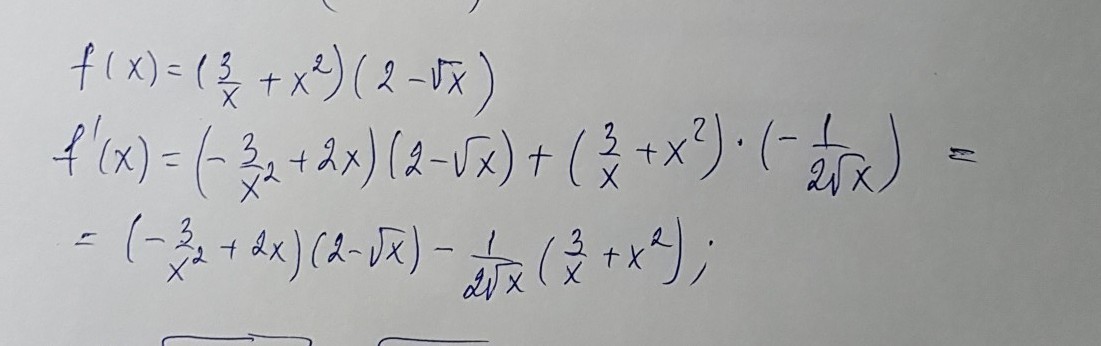 f(x) = (3/x + x²)(2 - √x)
f'(x) = (-3/x² + 2x)(2 - √x) + (3/x + x²) · (-1/(2√x)) =
= (-3/x² + 2x)(2 - √x) - 1/(2√x) (3/x + x²);